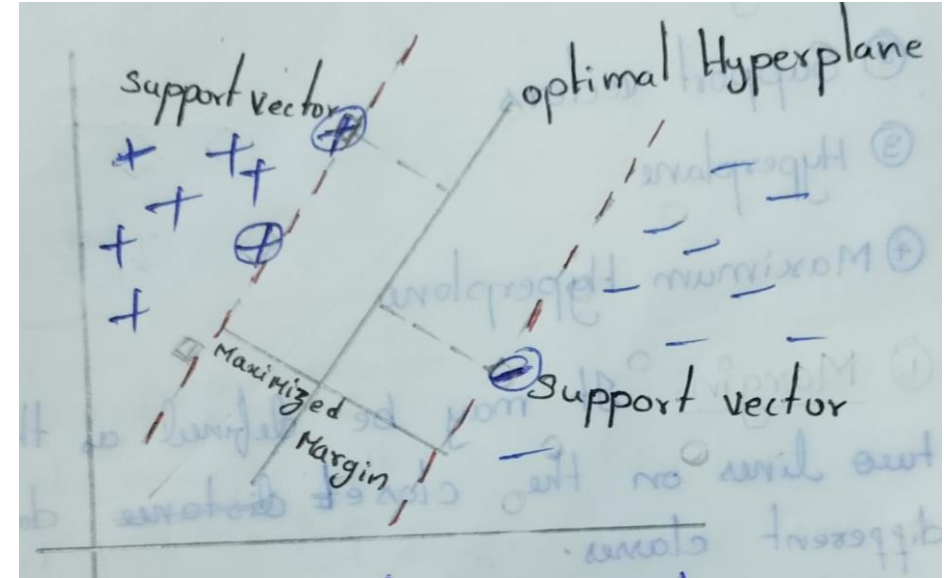 Support vector
optimal Hyperplane
Maximized
Margin
Support vector